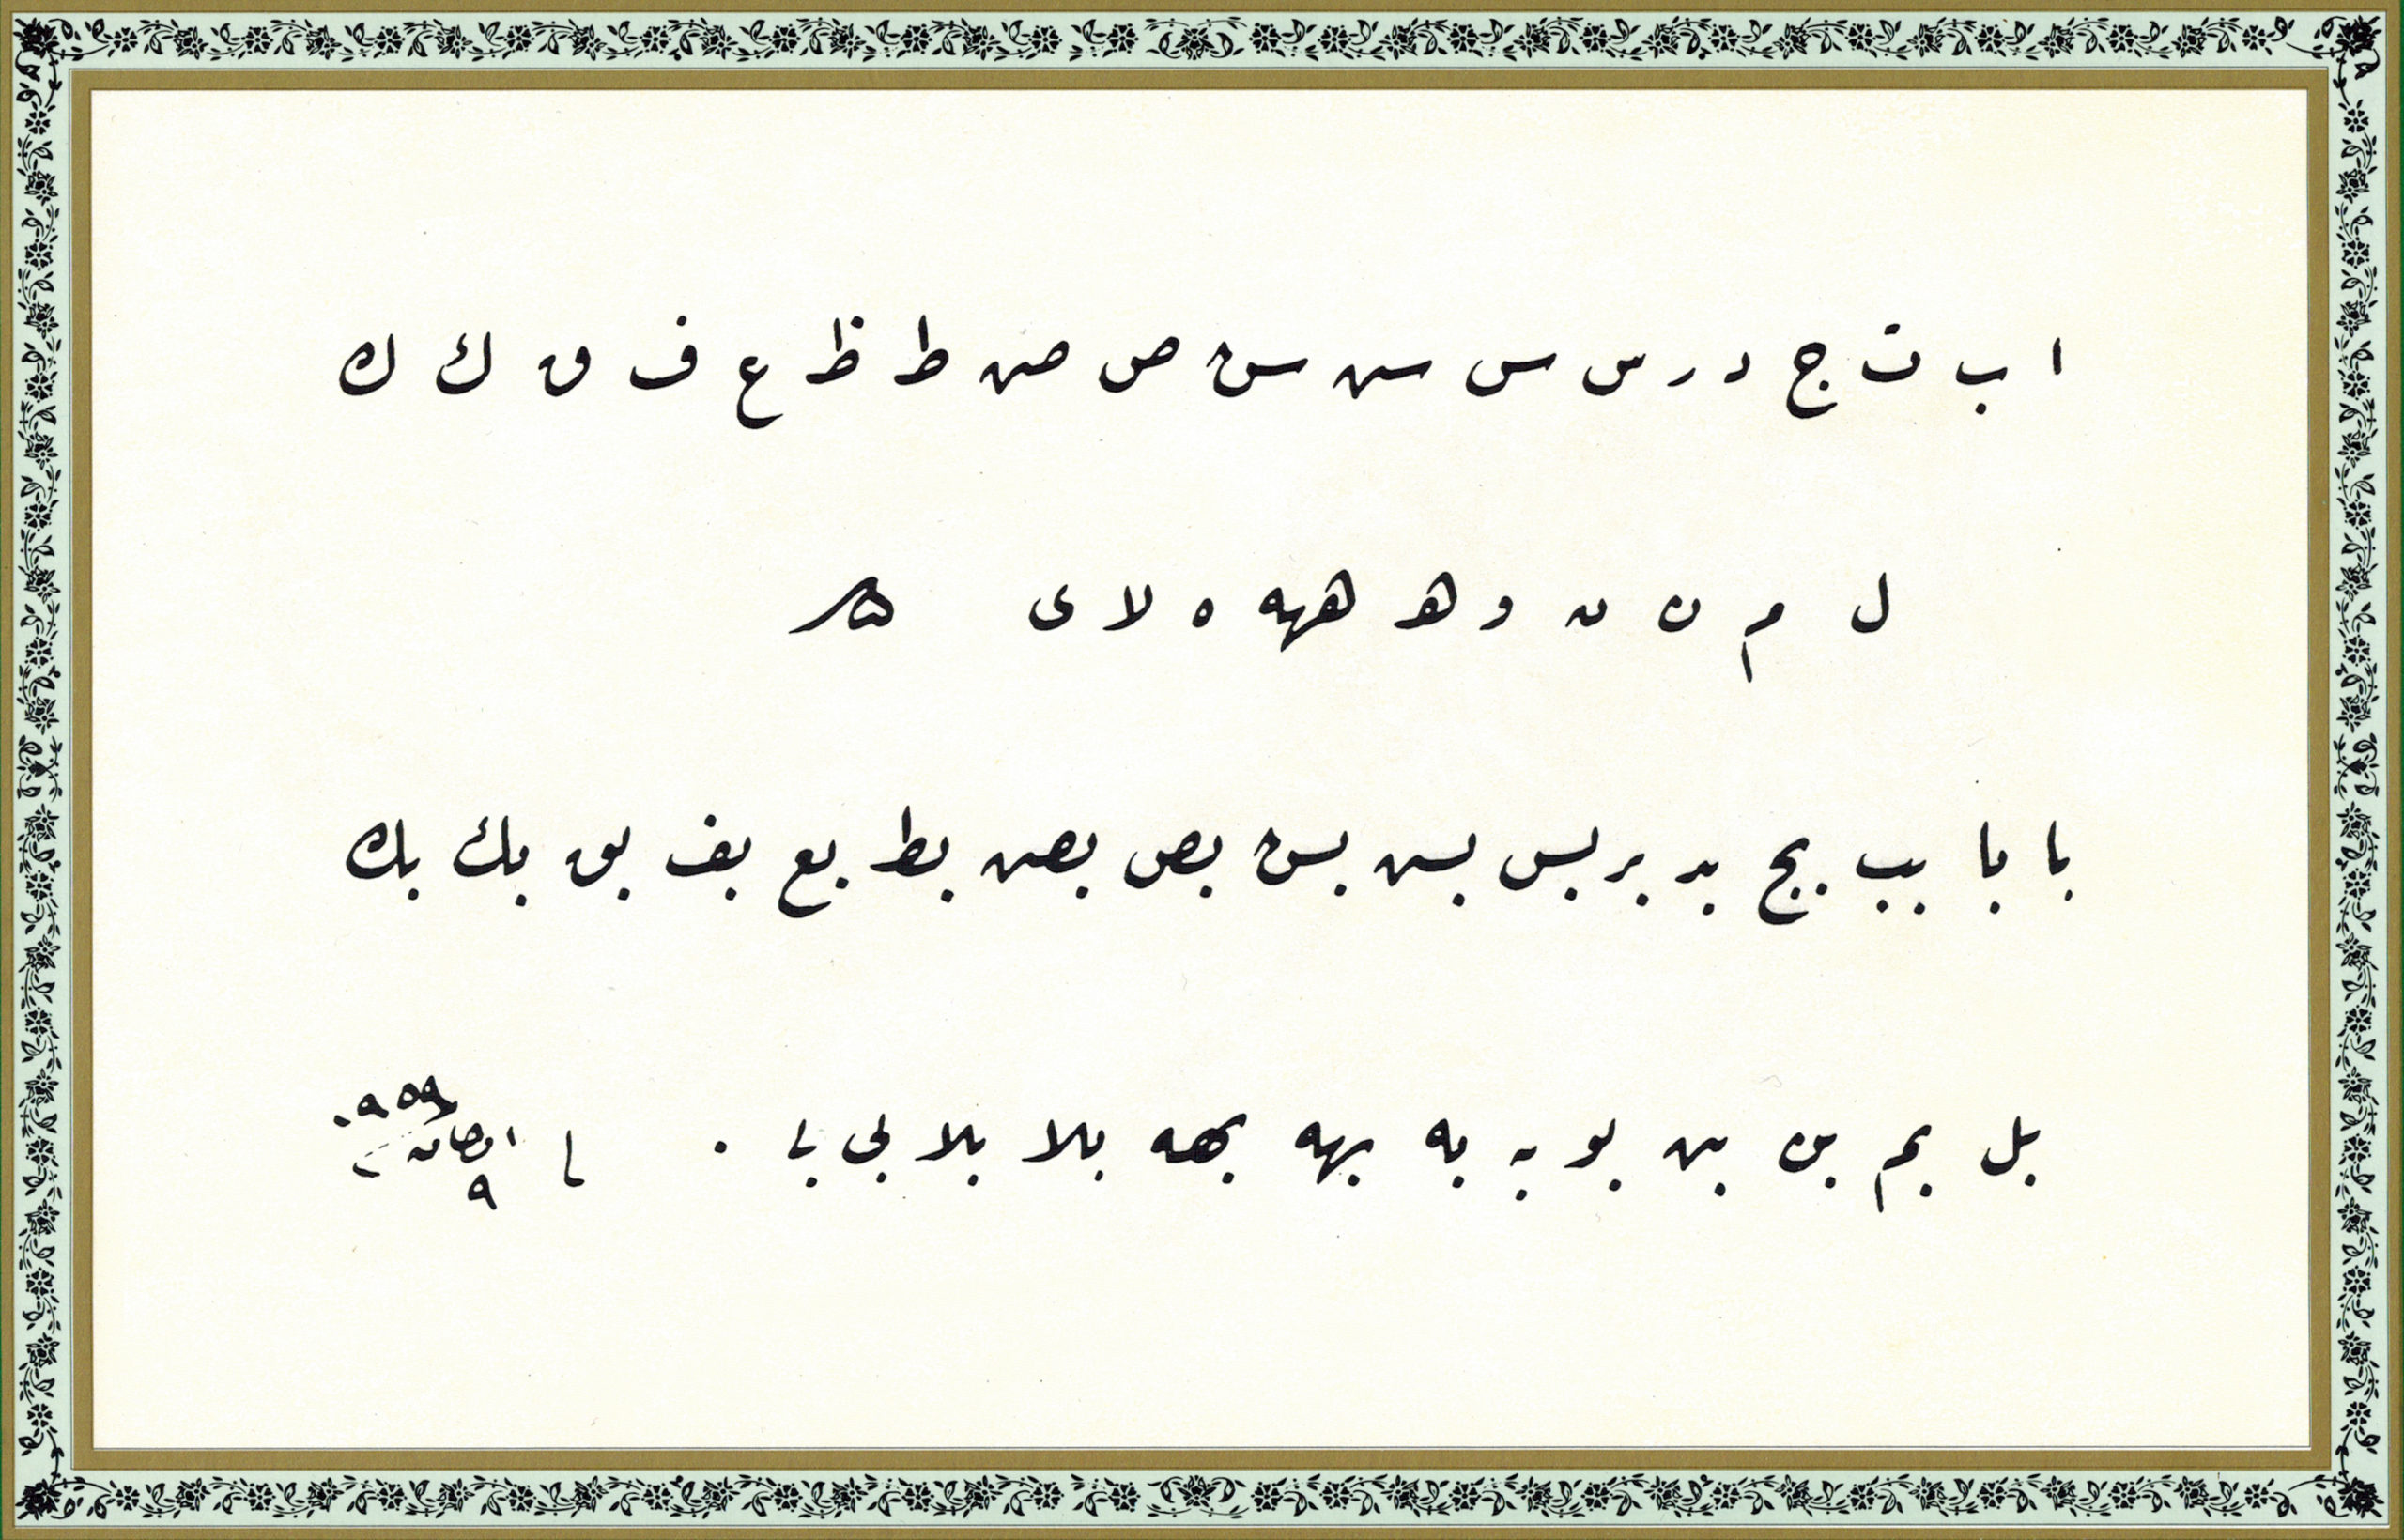 ا ب ت ج د ر س س س س ص ص ط ظ ع ف ق ك ك
ل م ن ن و هـ ههه ه لا ى
با با بب بج بد بر بس بس بس بص بص بط بع بف بق بك بك
بل بم بن بن بو به به بهه بهه بلا بلا بى بے